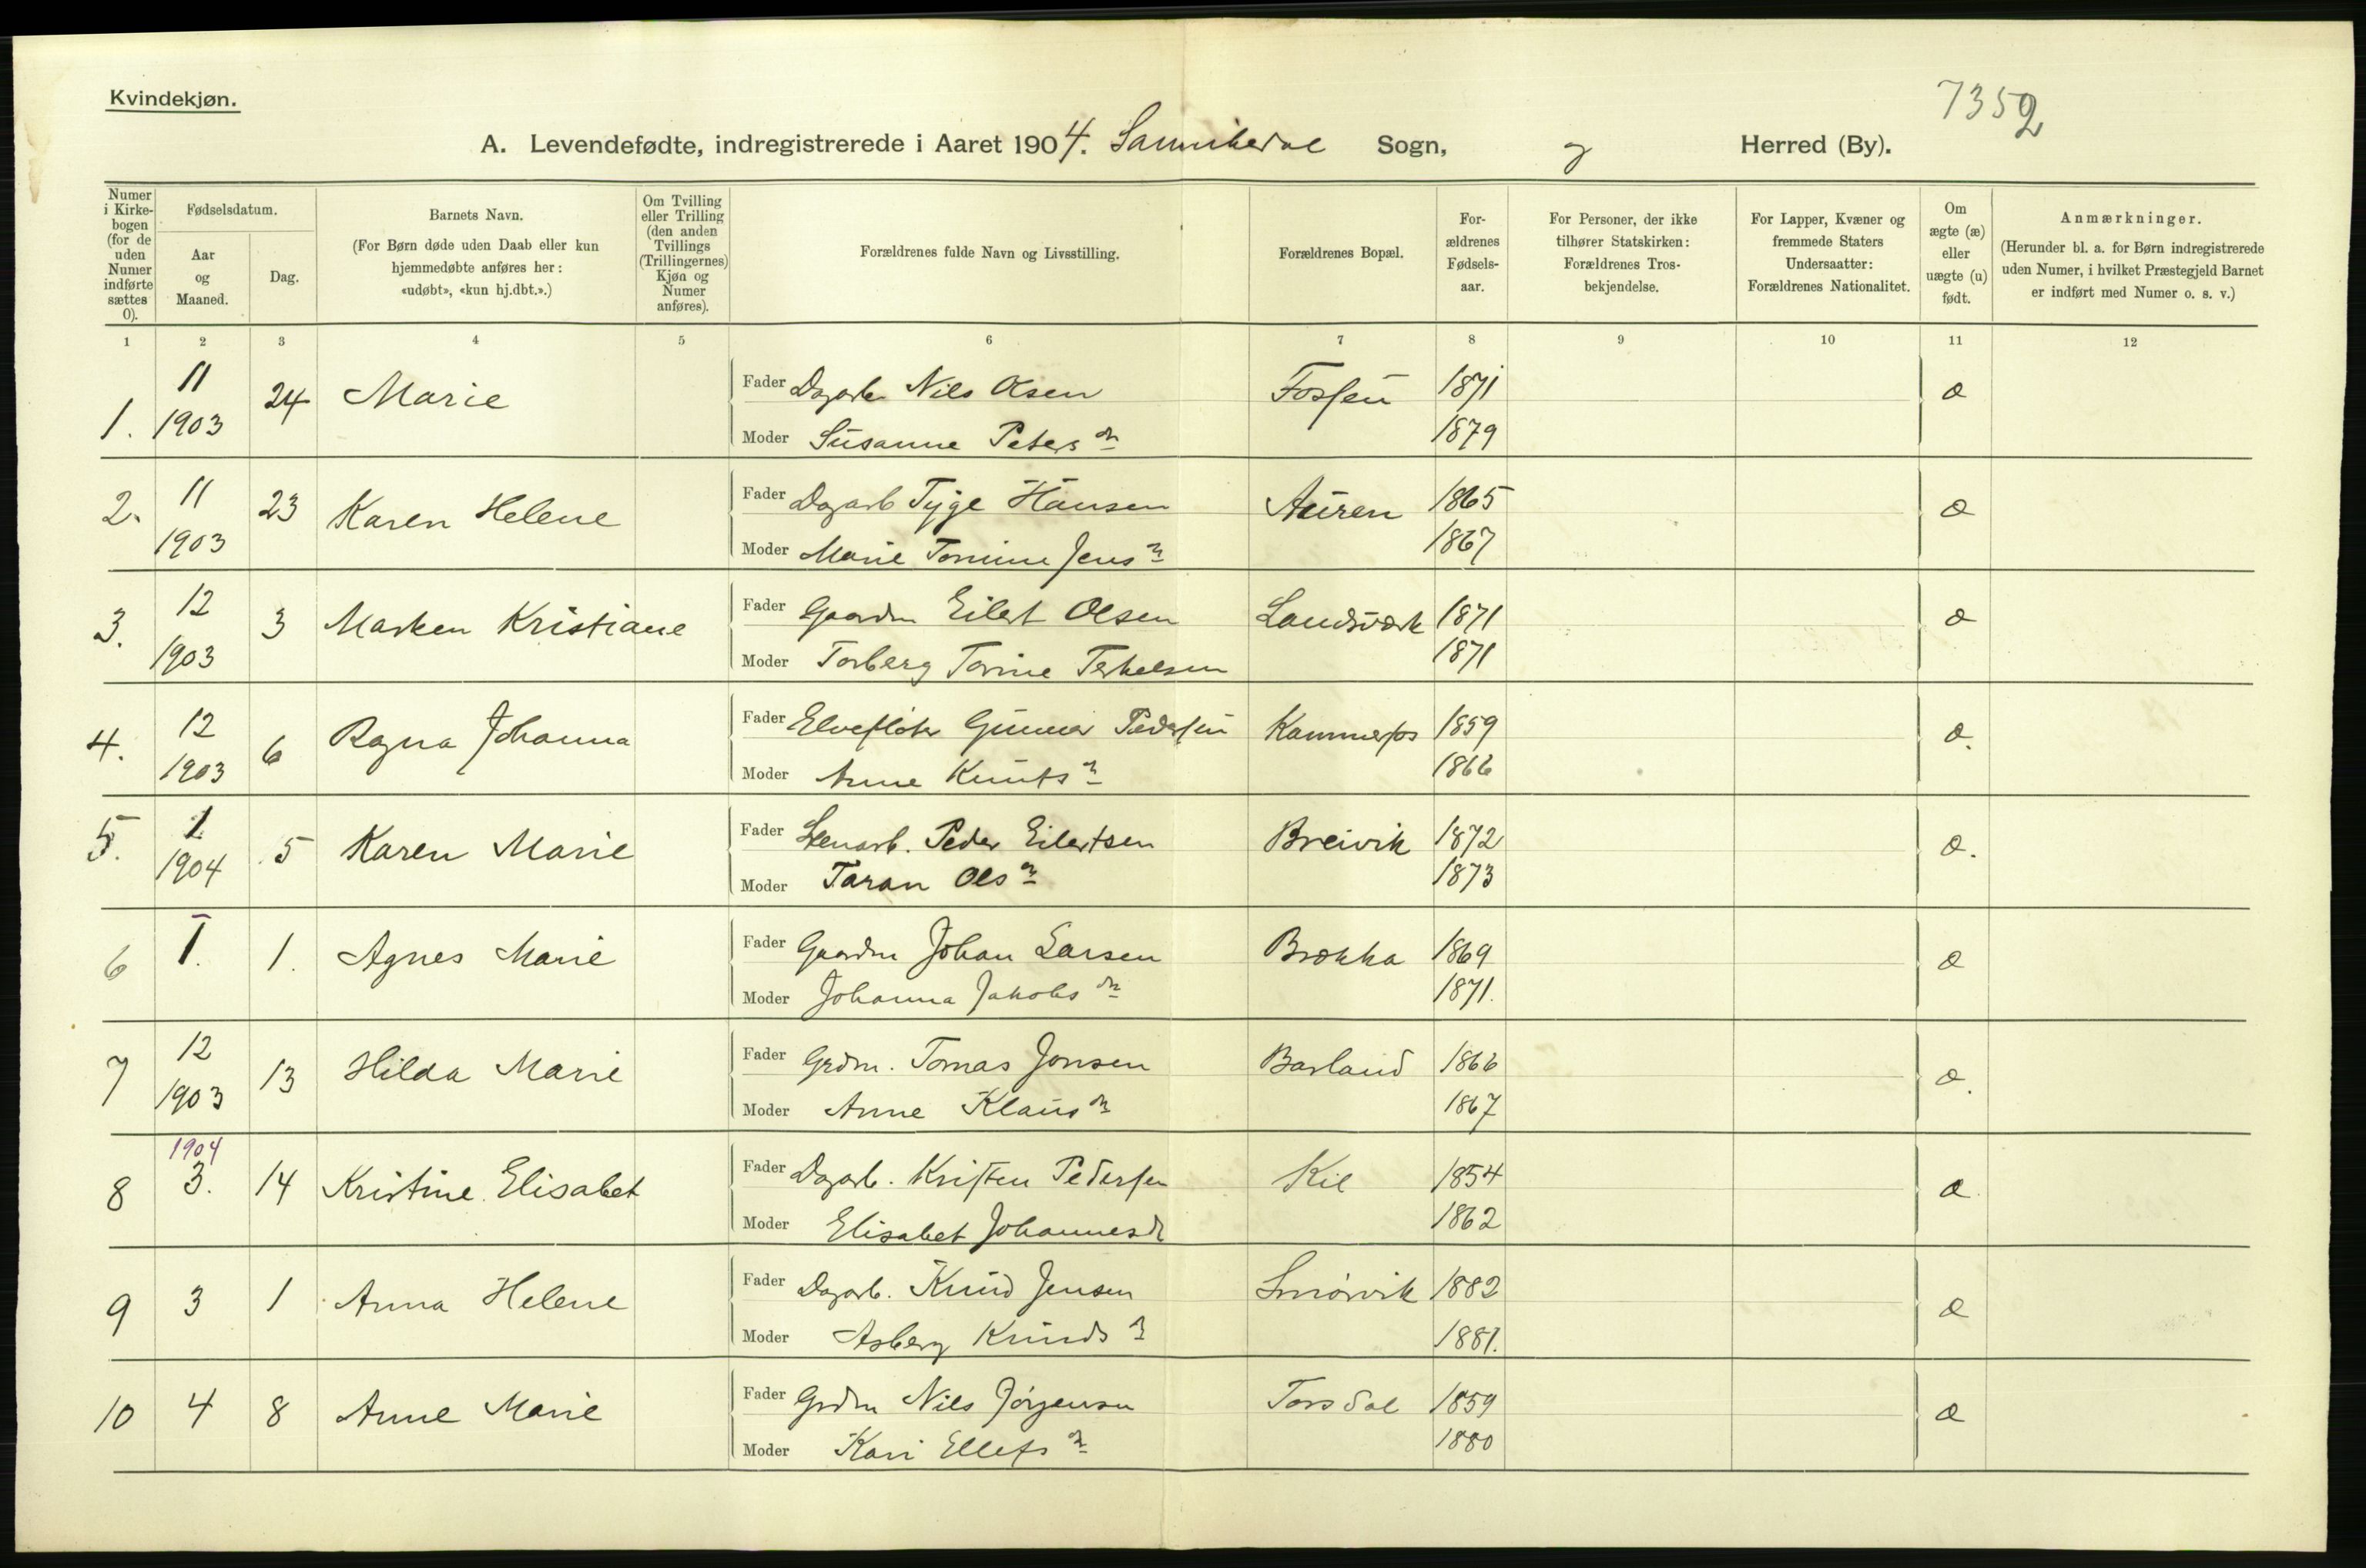 Kvindekjøn.
7352
A. Levendefødte, indregistrerede i Aaret 1904. Sannikedal Sogn, Herred (By).
Numer i Kirkebogen (for de uden Numer indførte sættes 0).
Fødselsdatum.
Aar og Maaned.
Dag.
Barnets Navn.
(For Børn døde uden Daab eller kun hjemmedøbte anføres her: «udøbt», «kun hj.dbt.».)
Om Tvilling eller Trilling (den anden Tvillings (Trillingernes) Kjøn og Numer anføres).
Forældrenes fulde Navn og Livsstilling.
Forældrenes Bopæl.
Forældrenes Fødselsaar.
For Personer, der ikke tilhører Statskirken: Forældrenes Trosbekjendelse.
For Lapper, Kvæner og fremmede Staters Undersaatter: Forældrenes Nationalitet.
Om ægte (æ) eller uægte (u) født.
Anmærkninger.
(Herunder bl. a. for Børn indregistrerede uden Numer, i hvilket Præstegjeld Barnet er indført med Numer o. s. v.)
1 2 3 4 5 6 7 8 9 10 11 12
1. 11 1903 24 Marie Fader Dagarb Nils Olsen Fossen 1871 æ
Moder Susanne Petersdr 1879
2. 11 1903 23 Karen Helene Fader Dagarb Tyge Hansen Auren 1865 æ
Moder Marie Tomine Jensdr 1867
3. 12 1903 3 Marken Kristiane Fader Gaardm Eilert Olsen Landsværk 1871 æ
Moder Torberg Torine Terkelsen 1871
4. 12 1903 6 Ragna Johanna Fader Elvefløter Gunner Pedersen Kammerfos 1859 æ.
Moder Anne Knutsdr 1866
5. 1 1904 5 Karen Marie Fader Stenarb. Peder Eilertsen Breivik 1872 æ.
Moder Taran Olsdr 1873
6 1. 1. Agnes Marie Fader Gaardm Johan Larsen Brokka 1869 æ
Moder Johanna Jakobsdr 1871.
7 12 1903 13 Hilda Marie Fader Grdm. Tomas Jonsen Barland 1866 æ.
Moder Anne Klausdr 1867
8 1904 3. 14 Kristine Elisabet Fader Dagarb. Kristen Pedersen Kil 1854 æ
Moder Elisabet Johannesdr 1862
9 3 1 Anna Helene Fader Dagarb. Knud Jensen Smørvik 1882 æ
Moder Asberg Knudsdr 1881.
10 4 8 Anne Marie Fader Grdm Nils Jørgensen Torsdal 1859 æ
Moder Kari Ellefsdr 1880